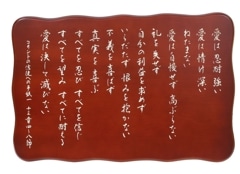 愛は忍耐強い
愛は情け深い
ねたまない
愛は自慢せず 高ぶらない
礼を失せず
自分の利益を求めず
いらだたず 恨みを抱かない
不義を喜ばず
真実を喜ぶ
すべてを忍び すべてを信じ
すべてを望み すべてに耐える
愛は決して滅びない